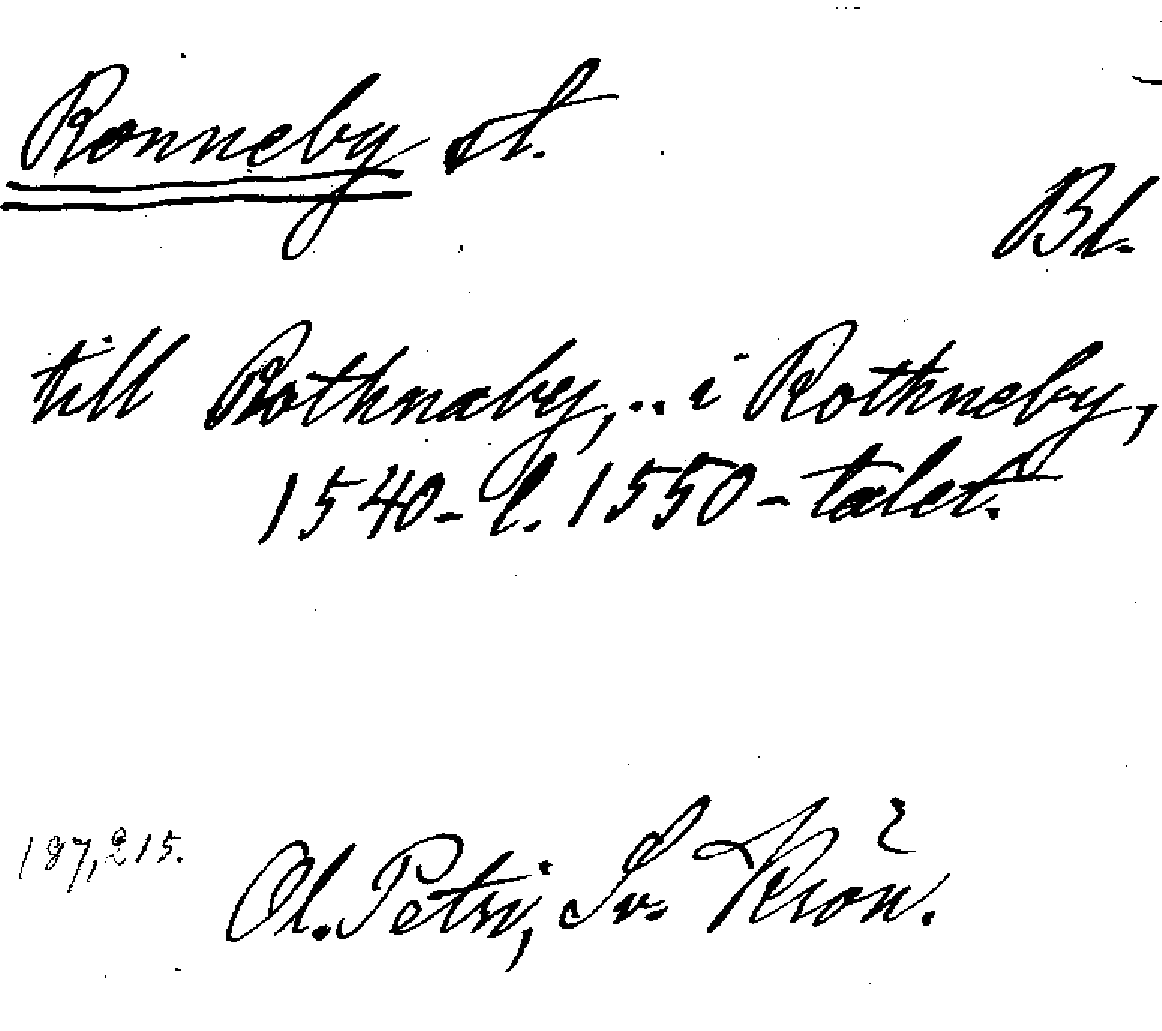 Ronneby st.
Bl.
till Rothnaby, .. i Rothneby,
1540- l. 1550-talet.
197, 215. Ol. Petri, Sv. Krön. 2